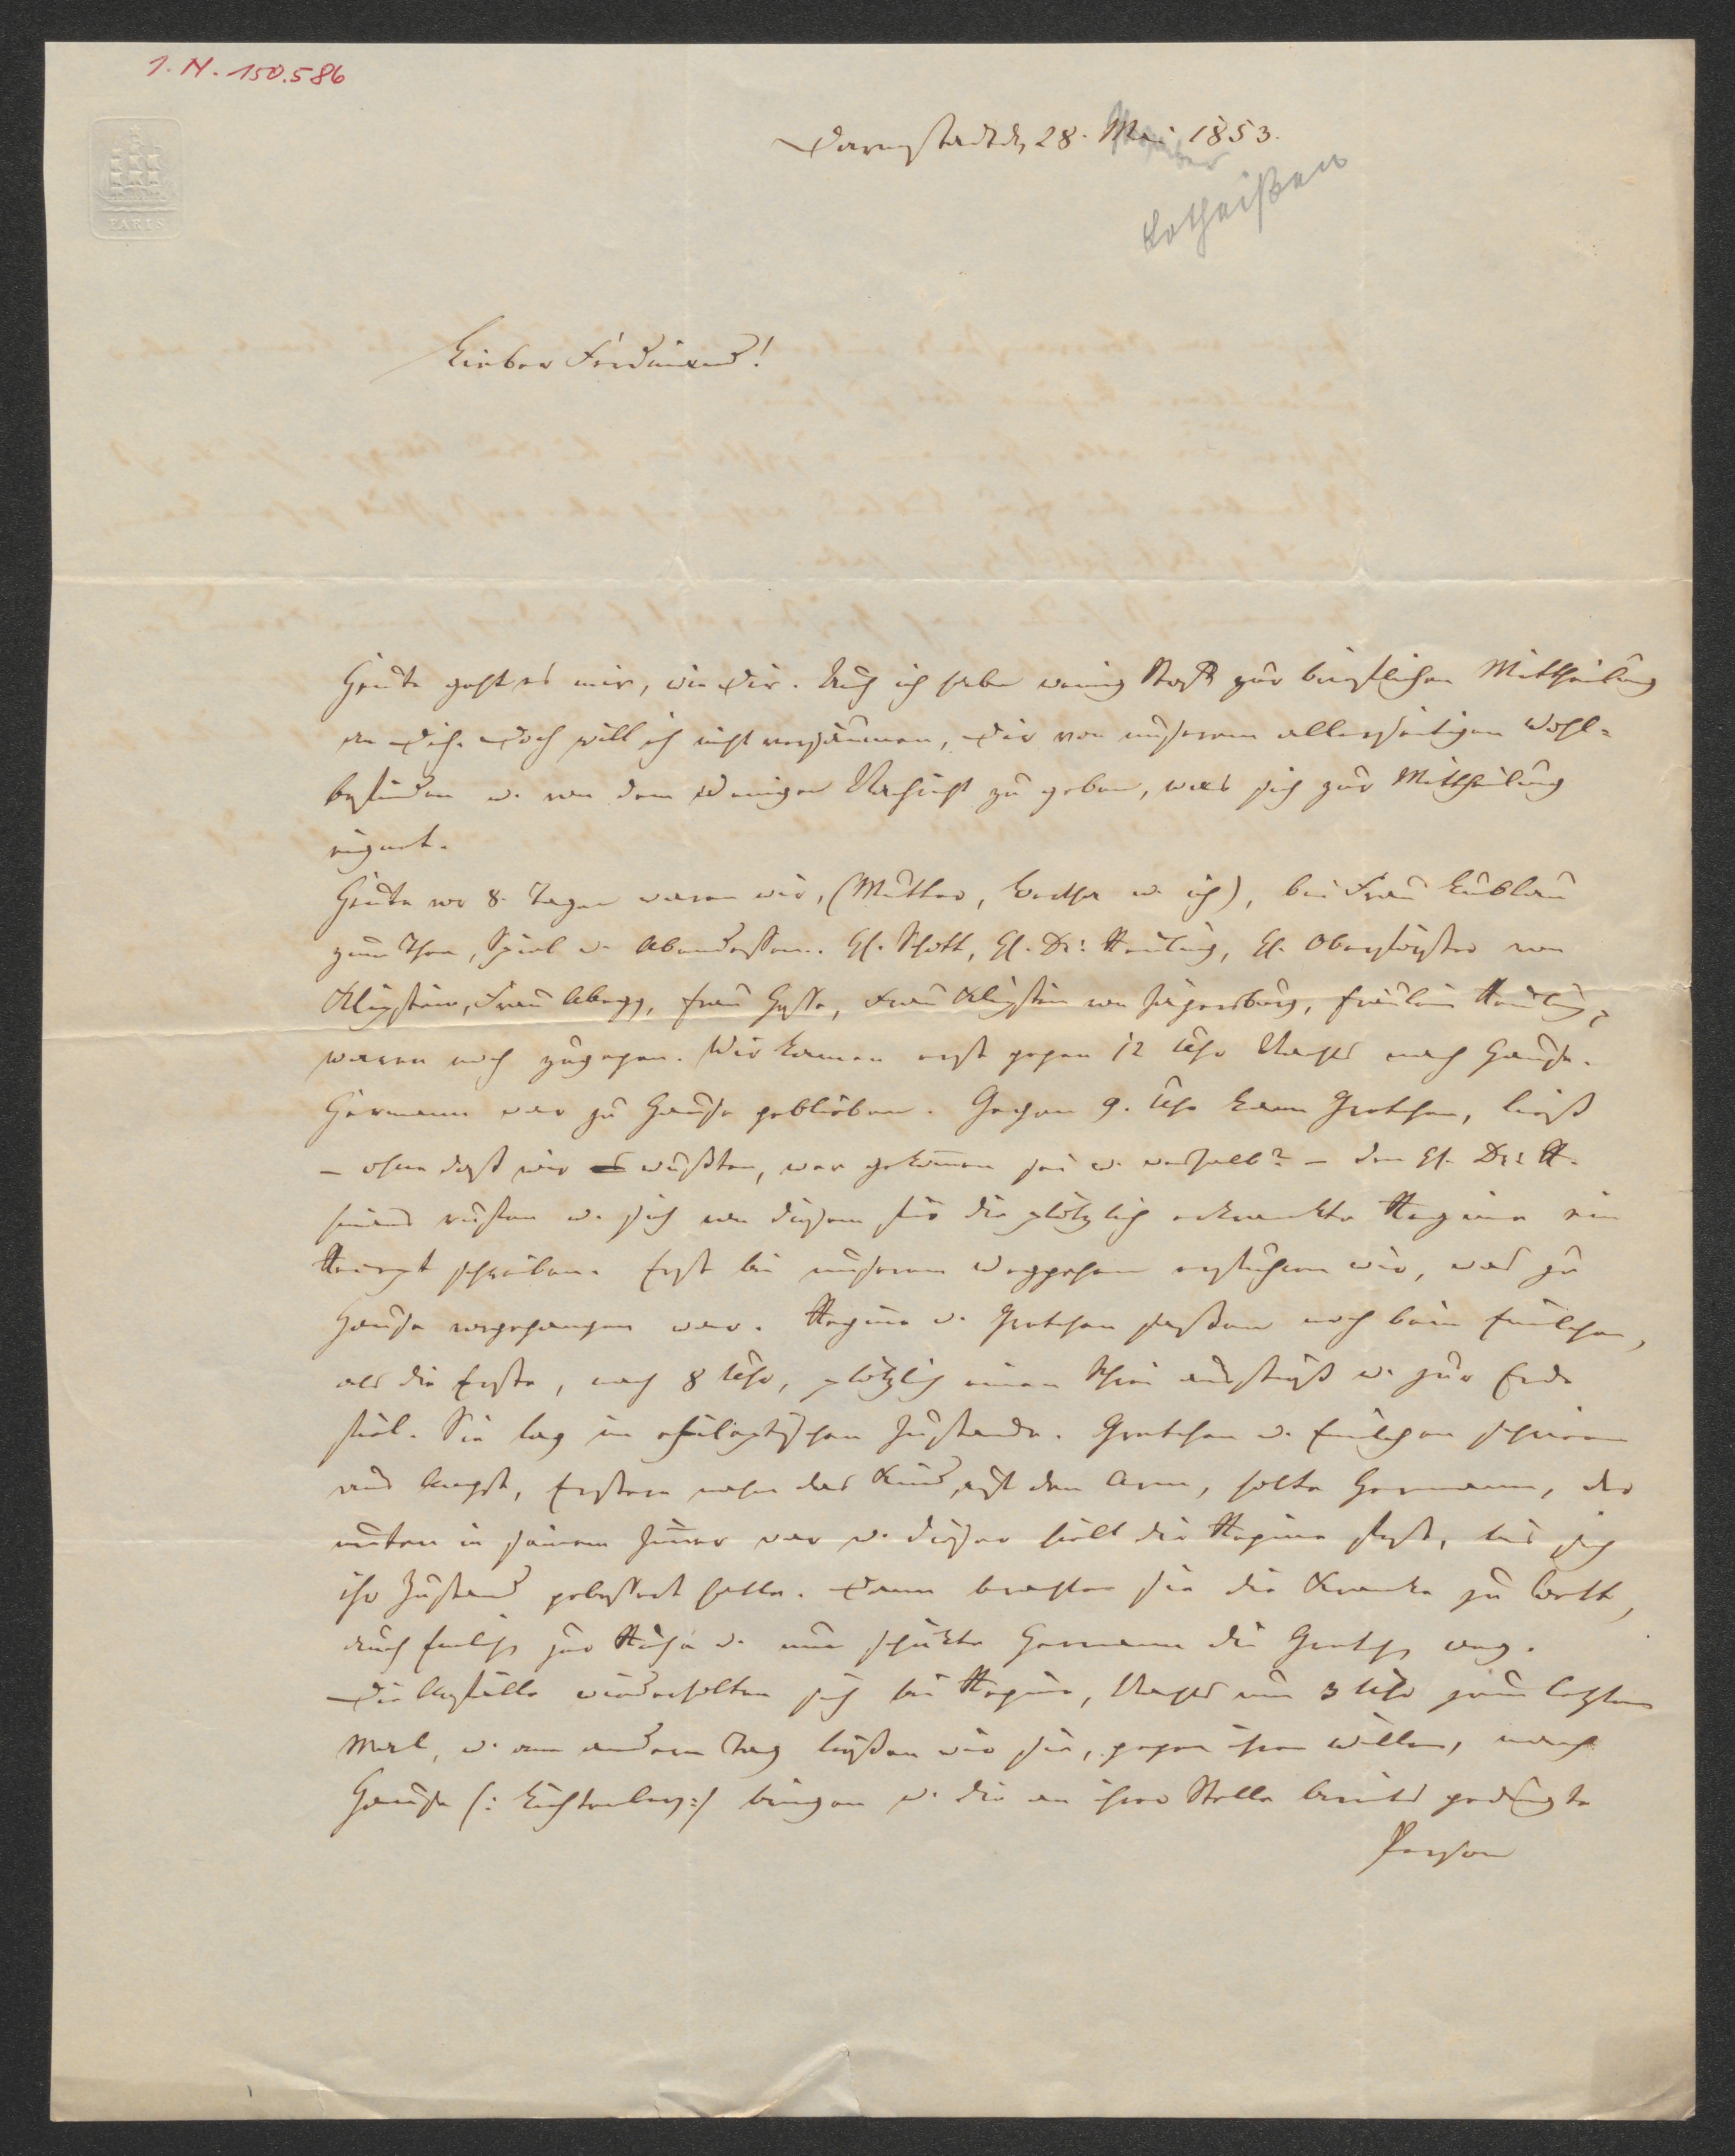 I. N. 150.586
PARIS
Darmstadt d. 28. Mai 1853.
Lotheißen
Lieber Ferdinand!
Heute geht es mir, wie Dir. Auch ich habe wenig Stoff zur brieflichen Mittheilung
an Dich. Doch will ich nicht versäumen, Dir von unserem allerseitigen Wohl-
befinden u. von dem Wenigen Nachricht zu geben, was sich zur Mittheilung
eignet.
Heute vor 8. Tagen waren wir, (Mutter, Bertha u. ich), bei Frau
zum Thee, Spiel u. Abendessen. H. Schott, H. Dr. H. Oberförster von
Klipstein, Frau Abegg, Frau Hesse, Frau Klipstein von Jägersburg, Fräulein
waren noch zugegen. Wir kamen erst gegen 12 Uhr Nachts nach Hause.
Hermann war zu Hause geblieben. Gegen 9. Uhr kam Gretchen, ließ
– ohne daß wir wußten, wer gekommen sei u. weshalb? – den H. Dr. R.
hinaus rufen u. sich von diesem für die plötzlich erkrankte Regine ein
Recept schreiben. Erst bei unserem Weggehen erfuhren wir, was zu
Hause vorgegangen war. Regine u. Gretchen saßen noch beim Emilchen,
als die Erste, nach 8 Uhr, plötzlich einen Schrei ausstieß u. zur Erde
fiel. Sie lag in epileptischem Zustande. Gretchen u. Emilchen schrieen
aus Angst, Erstere nahm das Kind auf den Arm, holte Hermann, der
unten in seinem Zimmer war u. dieser hielt die Regine fest, bis sich
ihr Zustand gebessert hatte. Dann brachten sie die Kranke zu Bett,
auch Emilch. zur Ruhe u. nun schickte Hermann die Gretch. weg.
Die Anfälle wiederholten sich bei Regine, Nachts um 3 Uhr zum letzten
Mal, u. am andern Tag ließen wir sie, gegen ihren Willen, nach
Hause (: Lichtenberg :) bringen u. die an ihre Stelle bereits gedingte
Person